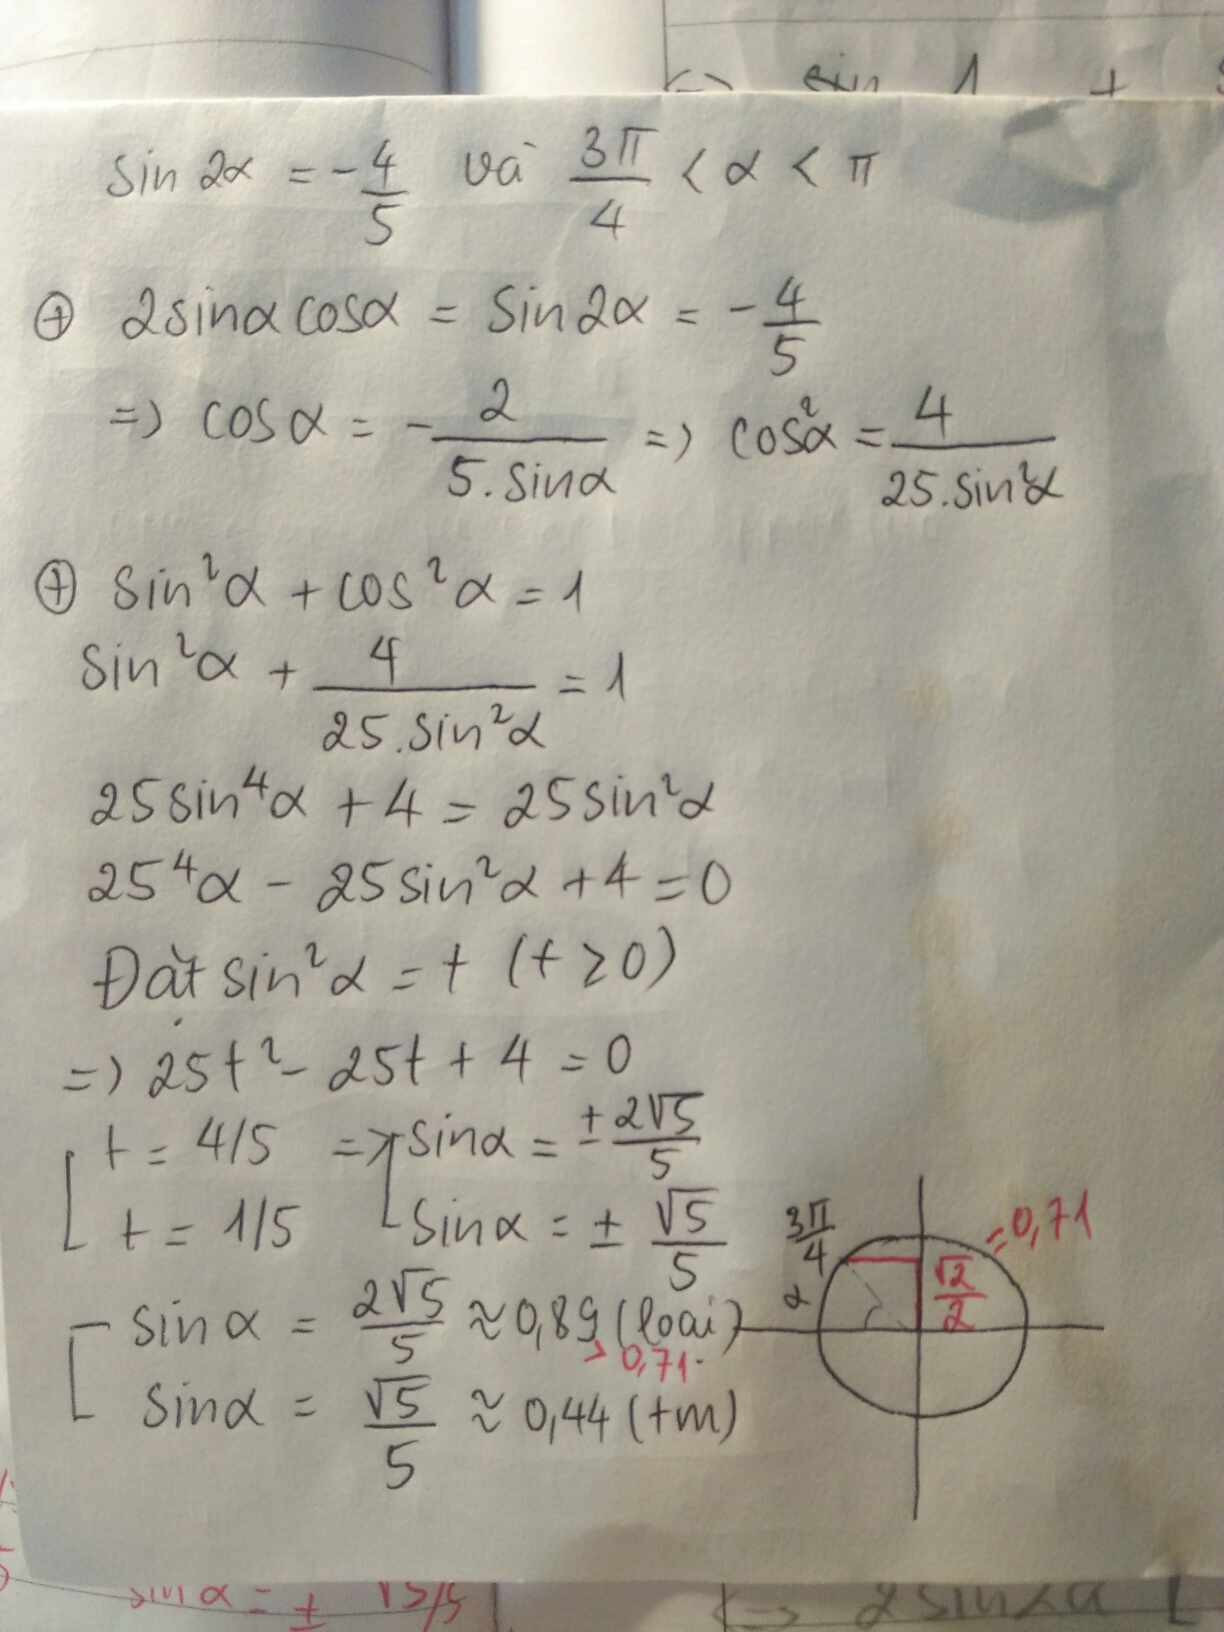 <-> sin 1 +
sin 2α = -4/5 và 3π/4 < α < π
⊕ 2sinα cosα = Sin2α = -4/5
=> cosα = -2/(5.sinα) => cos²α = 4/(25.sin²α)
⊕ sin²α + cos²α = 1
sin²α + 4/(25.sin²α) = 1
25sin⁴α + 4 = 25sin²α
25⁴α - 25sin²α + 4 = 0
Đặt sin²α = t (t ≥ 0)
=> 25t² - 25t + 4 = 0
[ t = 4/5 => [ sinα = ± 2√5/5
t = 1/5 sinα = ± √5/5
3π/4
α
√2/2
= 0,71
[ sinα = 2√5/5 ≈ 0,89 (loại)
> 0,71
sinα = √5/5 ≈ 0,44 (tm)
sinα = ± √5/5
<-> 2sin2α [